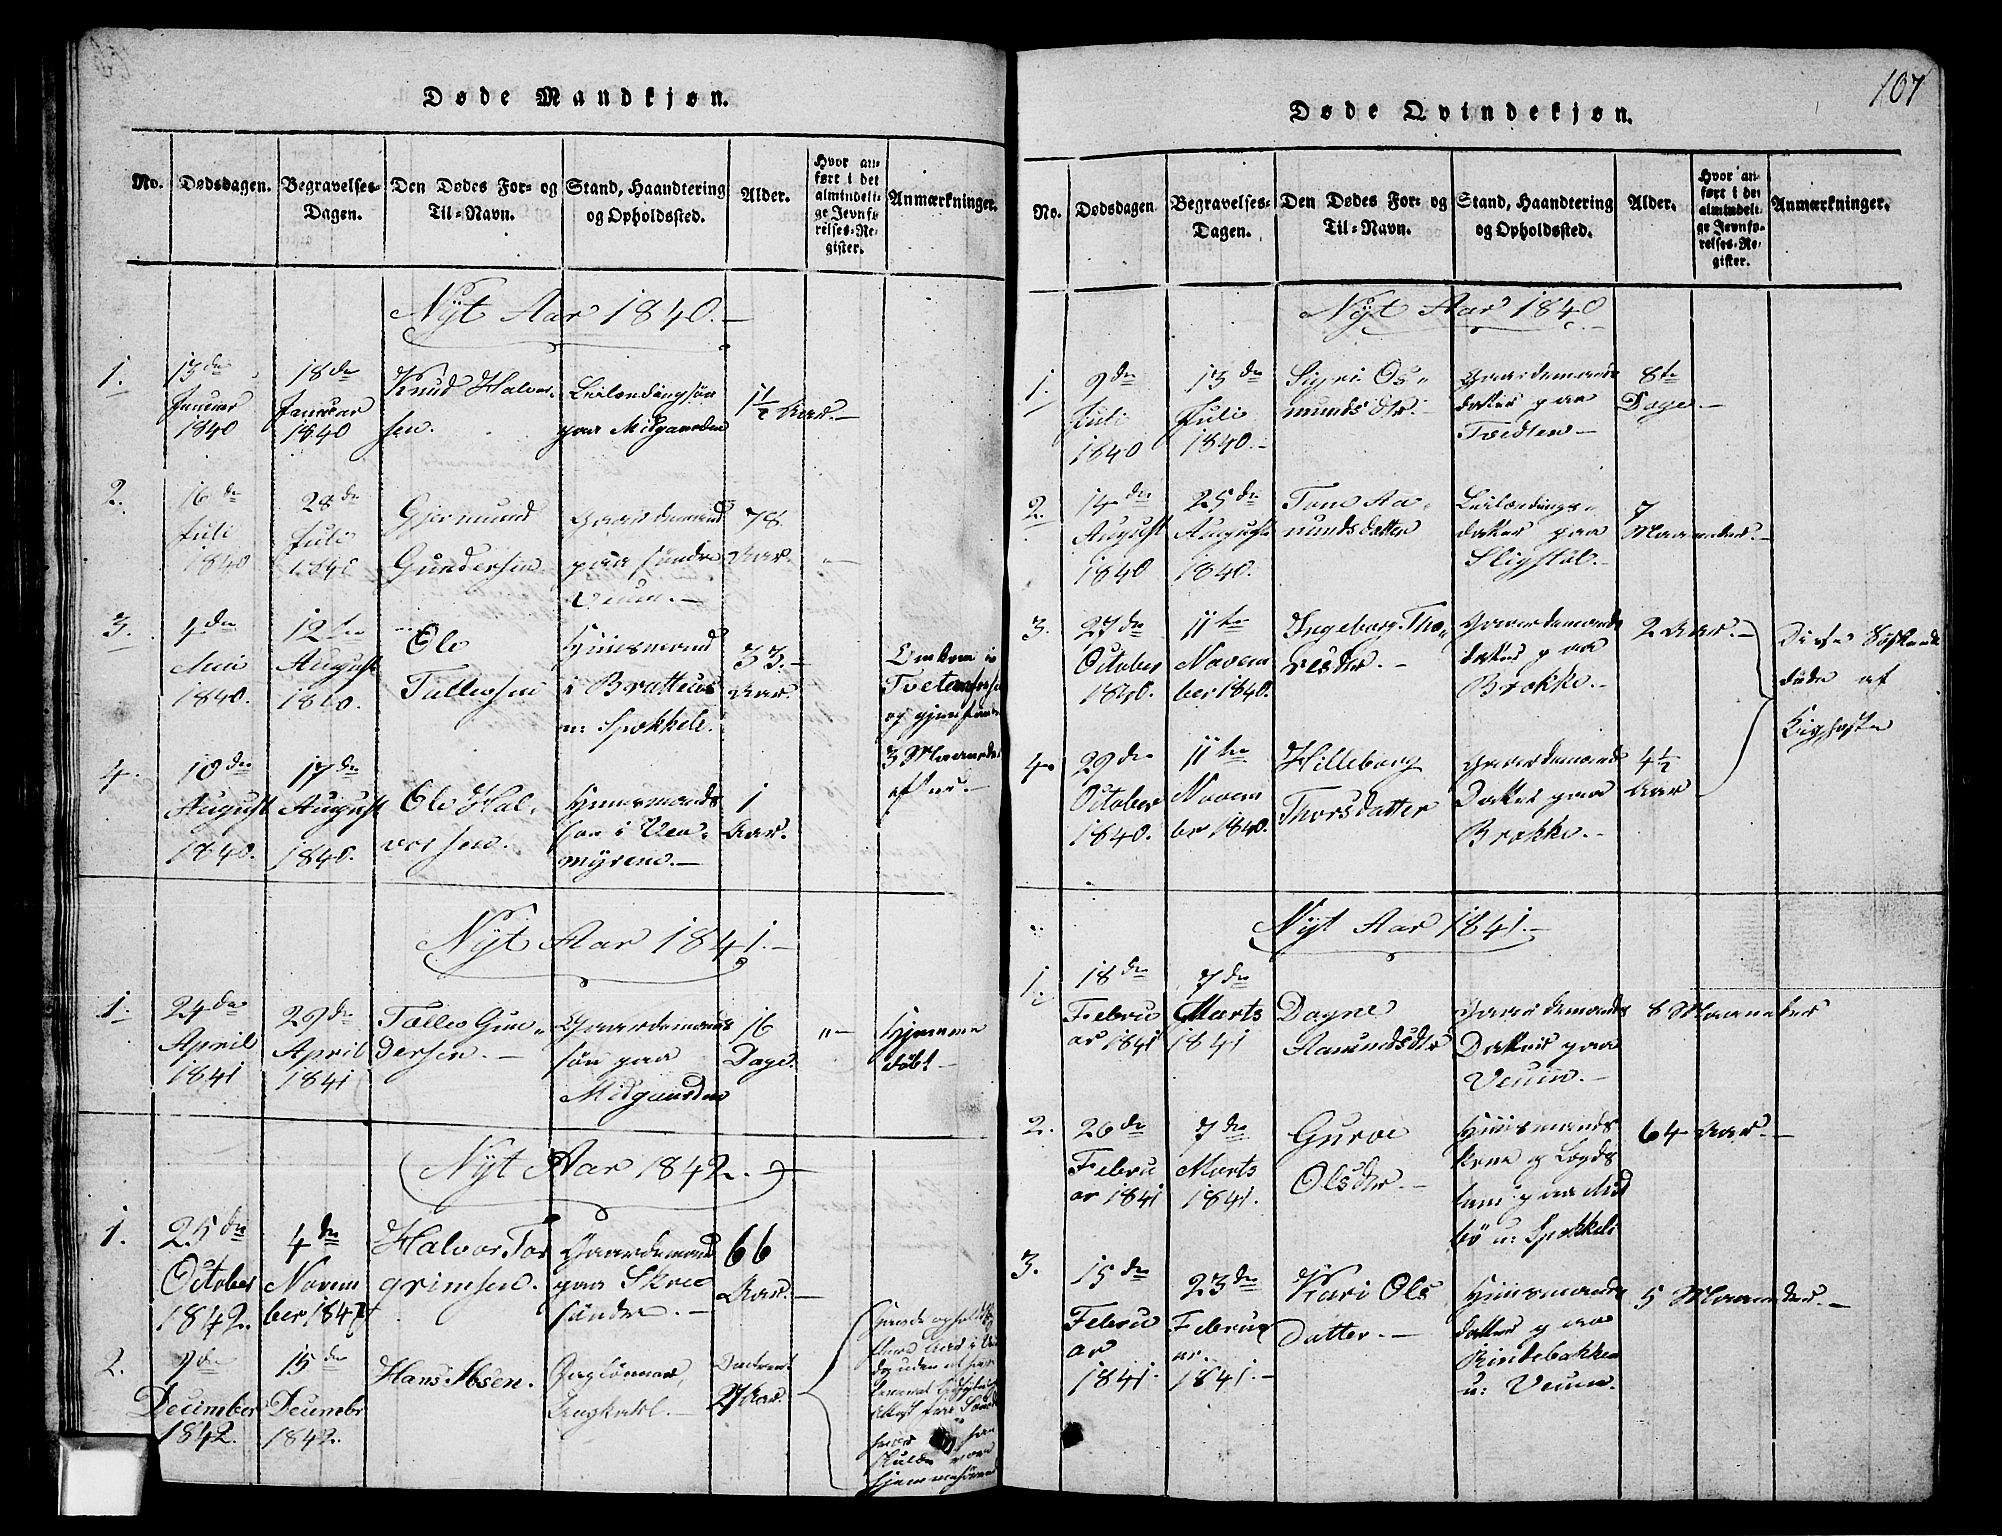 Døde Mandkjøn.
No.
Dødsdagen.
Begravelses-
Dagen.
Den Dødes For- og
Til-Navn.
Stand, Haandtering
og Opholdssted.
Alder.
Hvor an-
ført i det
almindeli-
ge Jevnfø-
relses-Re-
gister.
Anmærkninger.
Nyt Aar 1840.
1.
13de
Januar
1840
18de
Januar
1840
Knud Halvor-
sen.
Leilændingsøn
paa Midgaarden
1½ Aar.
2.
16de
Juli
1840
28de
Juli
1840
Gjermund
Gundersen.
Gaardemand
paa søndre
Veum.
78
Aar.
"
3.
4de
1840.
12te
August
1840.
Ole
Tallevsen
Huusmand
i Bratteus
u: Spokkeli.
33
Aar.
Omkom i
og gjenfand
3 Maaneder
4.
10de
August
1840.
17de
August
1840.
Ole Hal-
vorsen.
Huusmands
søn i Veu-
myrene.
1
Aar.
Nyt Aar 1841.
1.
24de
April
1841
29de
April
1841
Tallev Gun-
dersen.
Gaardemands
søn paa
Midgaarden
16
Dage.
"
Hjemme
døbt
Nyt Aar 1842.
1.
25de
October
1842.
4de
Novem
ber 1842
Halvor Tor
grimsen.
Gaardemand
paa Skree
søndre.
66
Aar.
2.
9de
December
1842.
15de
Decembr
1842.
Hans Ibsen.
Daglønner,
27 Aar.
hjemmehørend
107
Døde Qvindekjøn.
No.
Dødsdagen
Begravelses-
Dagen.
Den Dødes For- og
Til-Navn.
Stand, Haandtering
og Opholdssted.
Alder.
Hvor an-
ført i det
almindeli-
ge Jevnfø-
relses-Re-
gister.
Anmærkninger.
Nyt Aar 1840
1.
9de
Juli
1840
13de
Juli
1840.
Sigri Os-
munds dtr.
Gaardemands
datter paa
Tvedten
8te
Dage.
2.
14de
August
1840
25de
August
1840.
Tone Aa-
munds datter
Leilændings-
datter paa
7
Maaneder.
3.
27de
October
1840.
11te
Novem
ber 1840.
Ingeborg Tho-
resdtr.
Gaardemands
datter paa
Brokke.
2 Aar.
Disse Søskende
døde af
4.
29de
October
1840.
11te
Novem
ber 1840.
Hilleborg
Thorsdatter
Gaardemands
Datter paa
Brokke.
4½
Aar
Nyt Aar 1841.
1.
18de
Febru
ar 1841
7de
Marts
1841
Dagne
Aamundsdtr
Gaardemands
Datter paa
Veum.
8 Maaneder
2.
26de
Febru
ar 1841
7de
Marts
1841.
Guroe
Olsdtr.
Huusmands
kone og Lægds
lem paa Mid
bø u: Spokkeli
64 Aar.
3.
15de
Febru
ar
1841.
23de
Febru
ar.
1841.
Kari Ols
Datter.
Huusmands
datter paa
Rindebakken
u: Veum.
5 Maaneder.